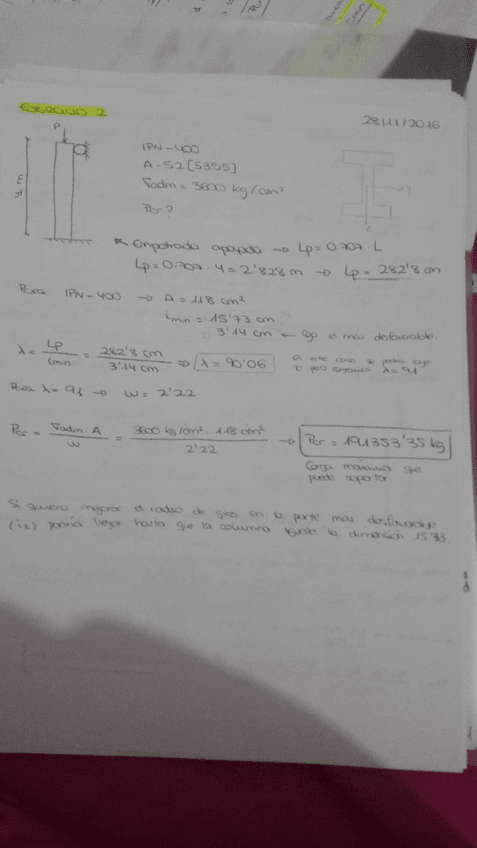 EJERCICIO 2
28/11/2016
P
4 m
IPN-400
A-52 [S355]
σadm = 3600 kg/cm²
Pcr ?
* Empotrada apoyada → Lp = 0.707 · L
Lp = 0.707 · 4 = 2'828 m → Lp = 282'8 cm
Para IPN-400 → A = 118 cm²
imin = 15'73 cm
3'14 cm ← el más desfavorable
λ = Lp / imin = 282'8 cm / 3'14 cm ⇒ λ = 90'06
λ = 91
Para λ = 91 → w = 2'22
Pcr = σadm · A / w = 3600 kg/cm² · 118 cm² / 2'22 → Pcr = 191353'35 kg
Carga máxima que
puede soportar
Si quiero mejorar el radio de giro en la parte más desfavorable
podría llegar hasta que la columna iguale la dimensión 15'73.